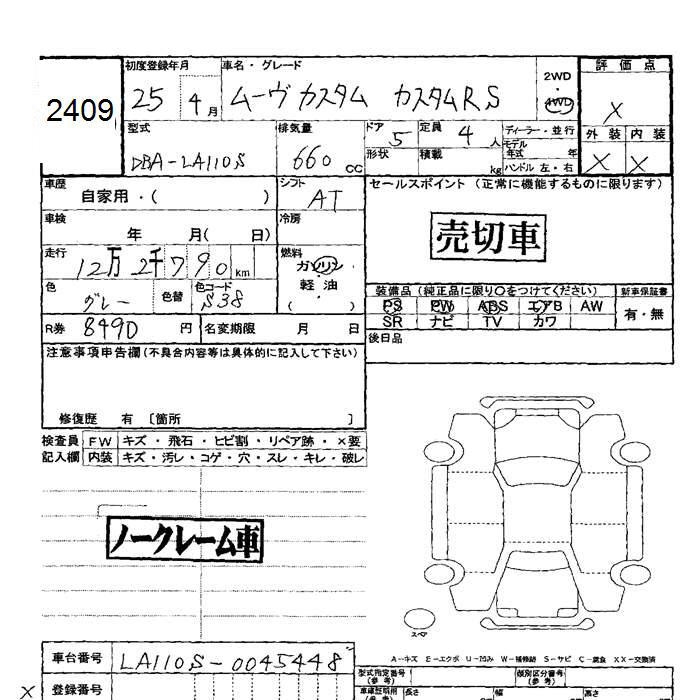 2409
初度登録年月 25 4月
車名・グレード ムーヴ カスタム カスタムRS
2WD
・
4WD
評価点
X
外装 内装
X X
型式 DBA-LA110S
排気量 660cc
ドア 5
形状
定員 4人
積載 kg
ディーラー・並行
モデル年式 年
ハンドル 左・右
車歴 自家用・( )
シフト AT
車検 年 月( 日)
冷房
走行 12万2千790km
燃料
ガソリン
軽油
( )
色 グレー
色替
色コード S38
R券 8490円
名変期限 月 日
セールスポイント(正常に機能するものに限ります)
売切車
装備品(純正品に限り○をつけてください)
新車保証書
PS PW ABS エアB AW
有・無
SR ナビ TV カワ
後日品
注意事項申告欄(不具合内容等は具体的に記入して下さい)
修復歴 有 〔箇所 〕
検査員 FW キズ・飛石・ヒビ割・リペア跡・×要
記入欄 内装 キズ・汚レ・コゲ・穴・スレ・キレ・破レ
ノークレーム車
スペア
A-キズ E-エクボ U-凹み W-補修跡 S-サビ C-腐食 XX-交換済
車台番号 LA110S-0045448
型式指定番号(参考)
類別区分番号(参考)
X 登録番号
長さ
幅
高さ